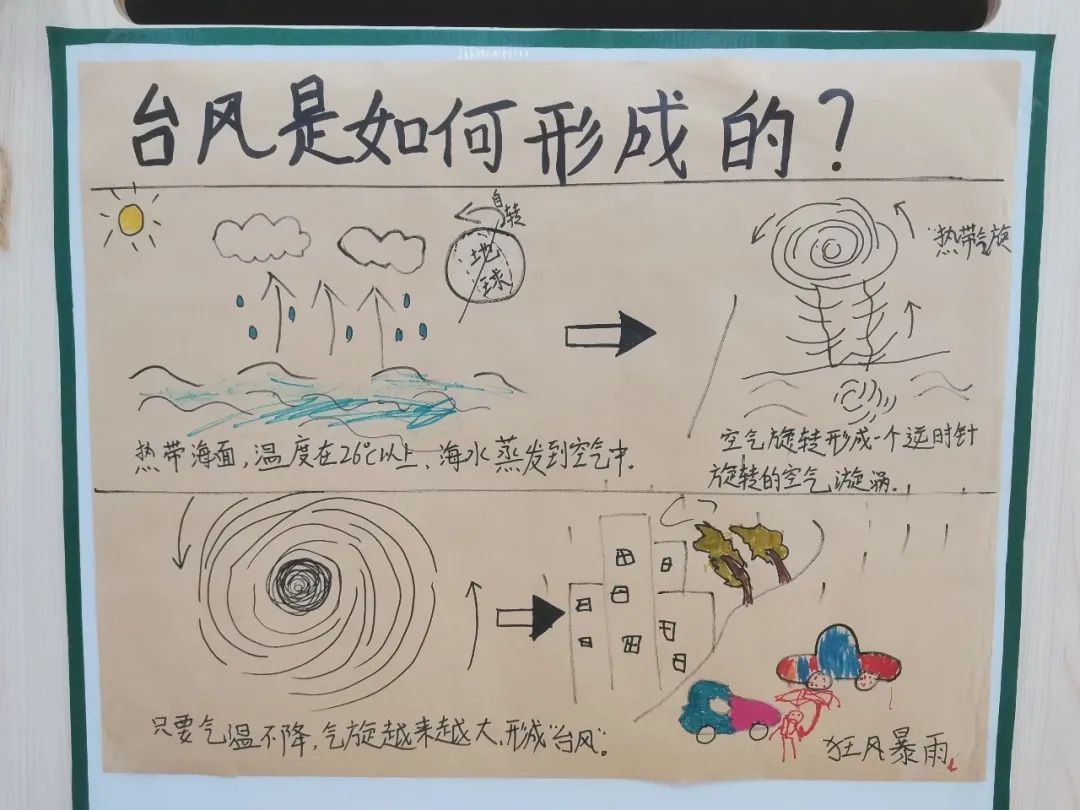 台风是如何形成的?
自转
地球
"热带气旋
热带海面,温度在26℃以上,海水蒸发到空气中.
空气旋转形成一个逆时针
旋转的空气漩涡.
只要气温不降,气旋越来越大,形成"台风".
狂风暴雨.